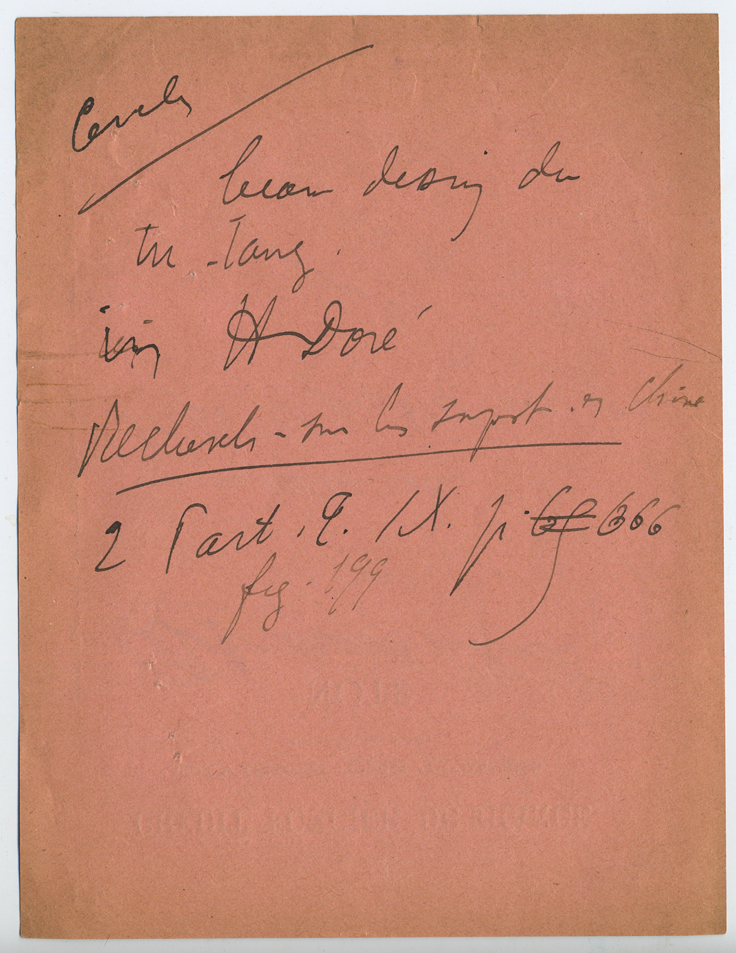 Cercle
beau dessin du
Tu-Tang.
in H Doré
Recherches sur les superst. en Chine
2 Part. T. IX. p. 666
fig. 199